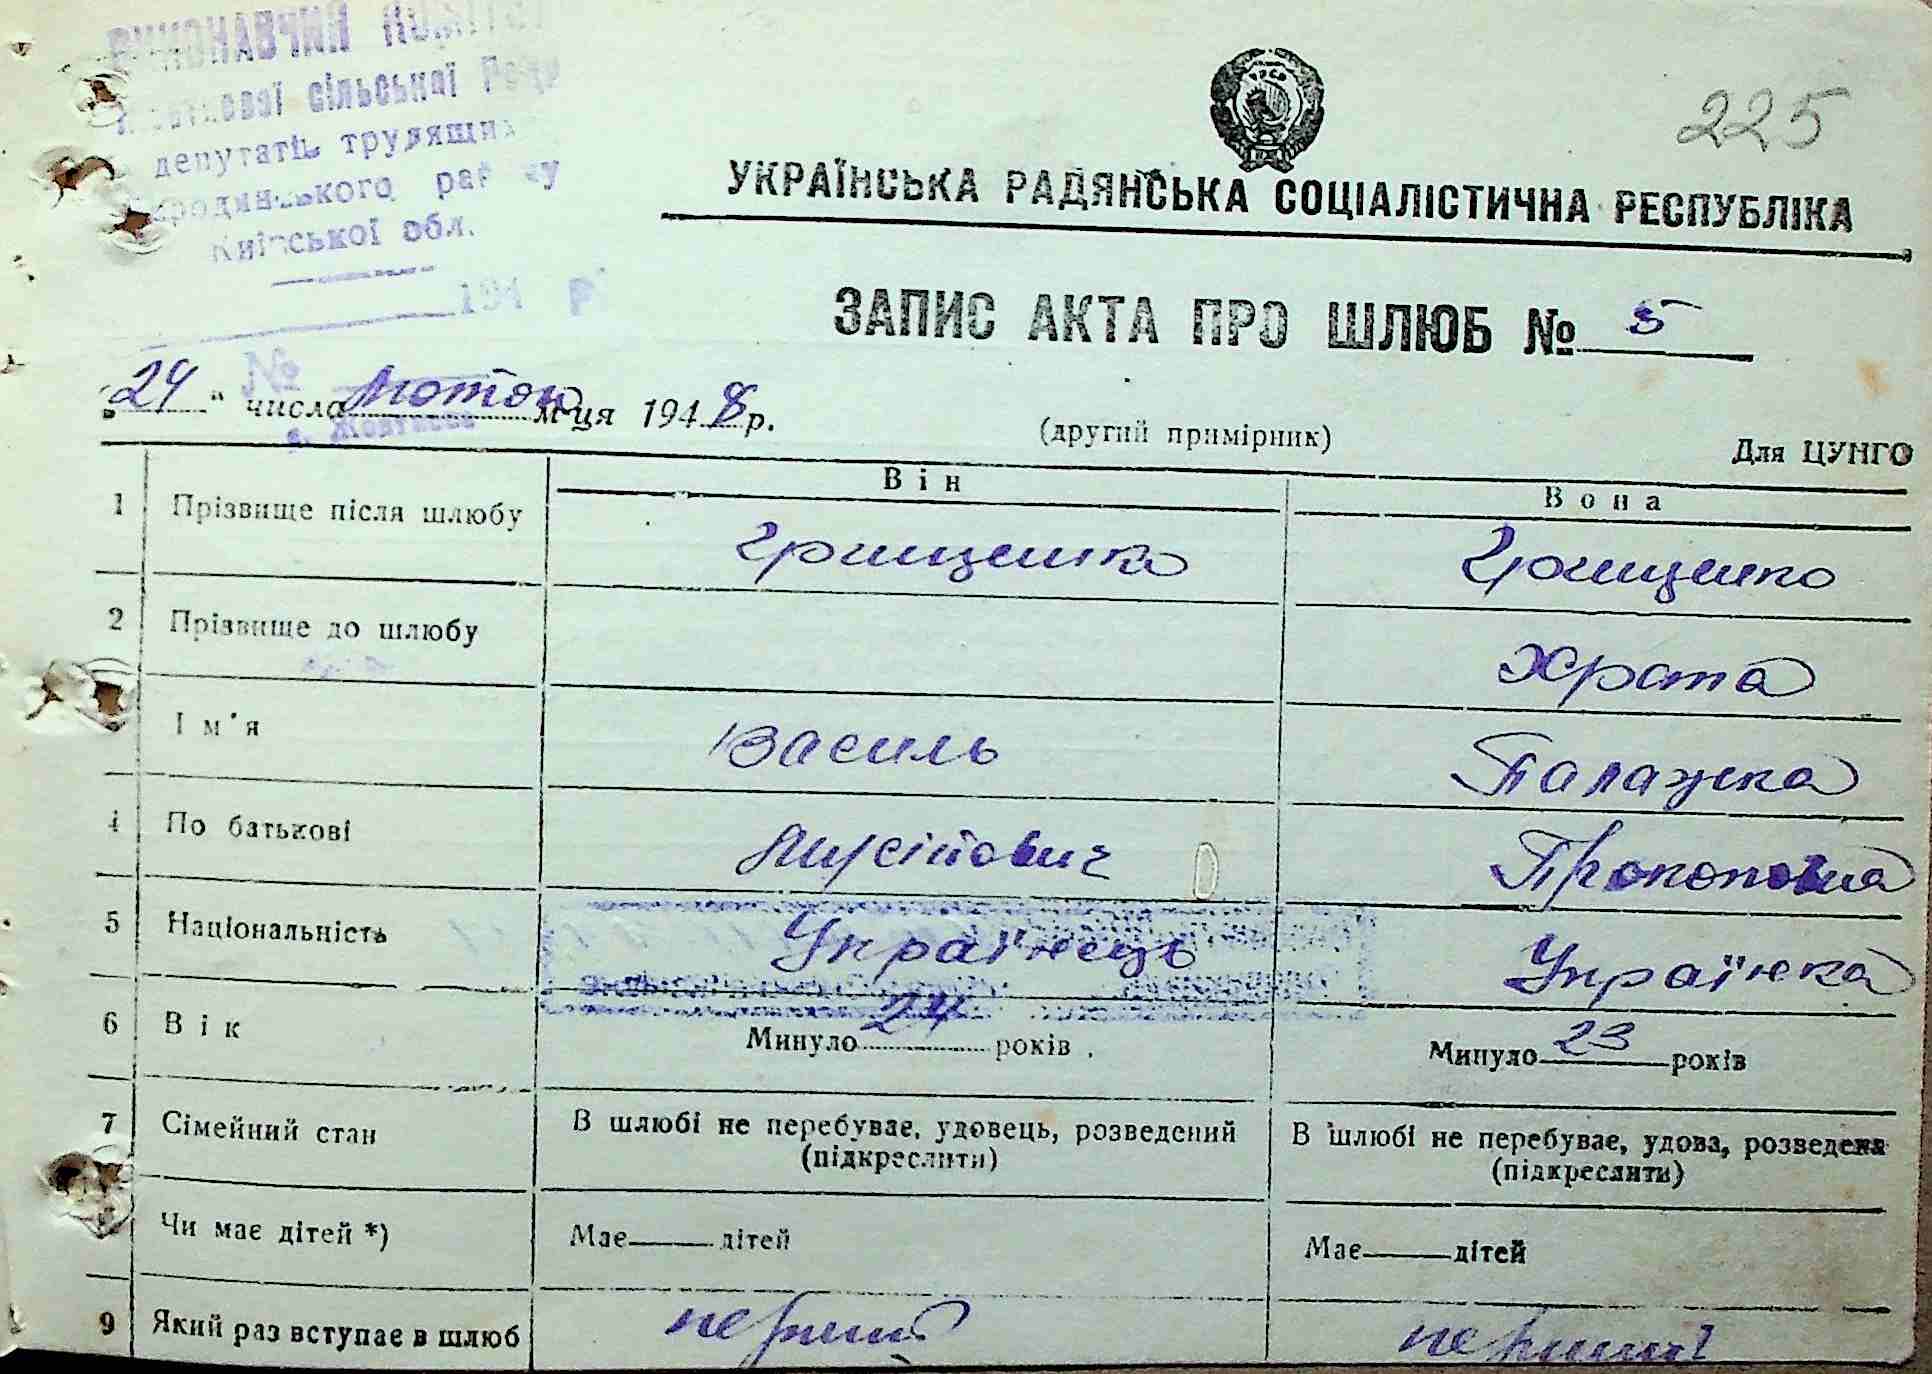 ВИКОНАВЧИЙ КОМІТЕТ
сільської Ради
депутатів трудящих
Бородянського району
Київської обл.
225
УКРАЇНСЬКА РАДЯНСЬКА СОЦІАЛІСТИЧНА РЕСПУБЛІКА
194 р
ЗАПИС АКТА ПРО ШЛЮБ № 5
№
„24“ числа лютого м-ця 1948 р.
(другий примірник)
Для ЦУНГО
Він Вона
1 Прізвище після шлюбу Грищенко Грищенко
2 Прізвище до шлюбу Храпа
Ім'я Василь Палажка
4 По батькові Прокоповна
5 Національність Українець Українка
6 Вік Минуло 24 років Минуло 23 років
7 Сімейний стан В шлюбі не перебуває, удовець, розведений В шлюбі не перебуває, удова, розведена
(підкреслити) (підкреслити)
Чи має дітей *) Має — дітей Має — дітей
9 Який раз вступає в шлюб перший перший